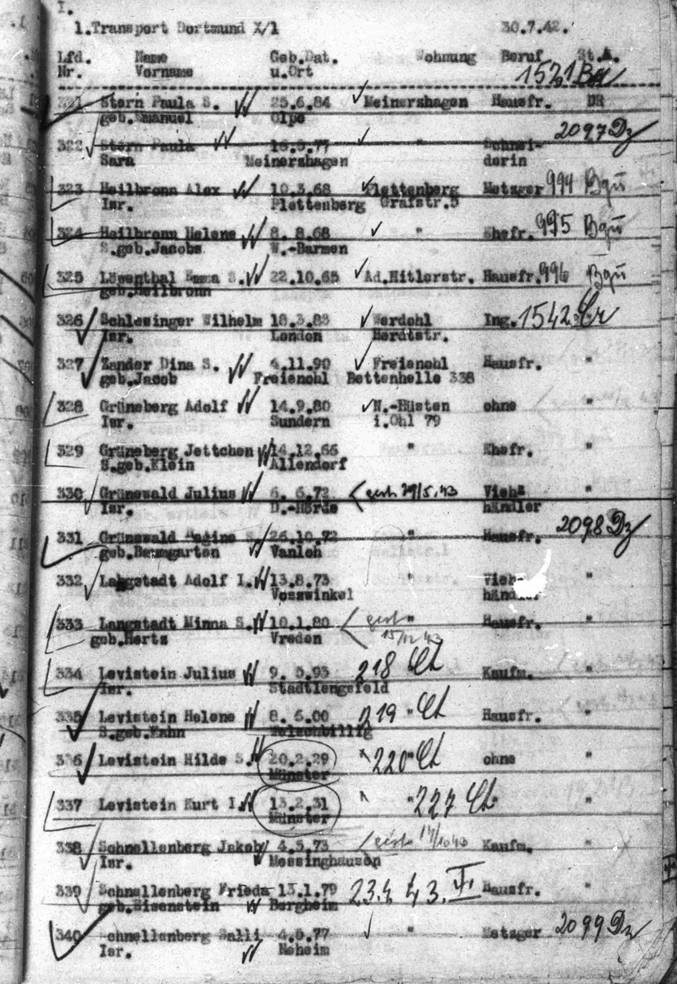 I.
1.Transport Dortmund X/1 30.7.42.
Lfd. Name Geb.Dat. Wohnung Beruf St.A.
Nr. Vorname u.Ort
1521
321 Stern Paula S. 25.6.84 Meinerzhagen Hausfr. DR
geb.Emanuel Olpe
2097 Dz
322 Stern Paula Schnei-
Sara Meinerzhagen derin
323 Heilbronn Alex 10.3.68 Plettenberg Metzger 994
Isr. Plettenberg Grafstr.5
324 Heilbronn Helene 8.8.68 " Ehefr. 995
S.geb.Jacobs W.-Barmen
325 Löwenthal Emma S. 22.10.65 Ad.Hitlerstr. Hausfr. 996
geb.Heilbronn
326 Schlesinger Wilhelm 18.3.83 Werdohl Ing. 1542
Isr. London
327 Zander Dina S. 4.11.90 Freienohl Hausfr. "
geb.Jacob Freienohl Bettenhelle 338
328 Grüneberg Adolf 14.9.80 N.-Hüsten ohne "
Isr. Sundern i.Ohl 79
329 Grüneberg Jettchen 14.12.66 " Ehefr. "
S.geb.Klein Allendorf
330 Grünewald Julius 6. 6.72 gest. 29/5.43 Vieh- "
Isr. D.-Hörde händler
331 Grünewald 26.10.72 " Hausfr. 2098 Dz
geb.Baumgarten
332 Langstadt Adolf I. 13.8.73 " Vieh- "
Vosswinkel händler
333 Langstadt Minna S. 10.1.80 gest. " Hausfr. "
geb.Hertz Vreden
334 Levistein Julius 9. 5.93 218 Kaufm. "
Isr. Stadtlengsfeld
335 Levistein Helene 8. 6.00 219 " Hausfr. "
S.geb.Kahn Welschbillig
336 Levistein Hilde S. 20.2.29 220 " ohne "
Münster
337 Levistein Kurt I. 13.2.31 " 227 "
Münster
338 Schnellenberg Jakob 4.5.73 gest. Kaufm. "
Isr. Messinghausen
339 Schnellenberg Frieda 13.1.79 23.4.43. Hausfr. "
geb.Eisenstein Bergheim
340 Schnellenberg Salli 4.6.77 " Metzger 2099 Dz
Isr. Neheim